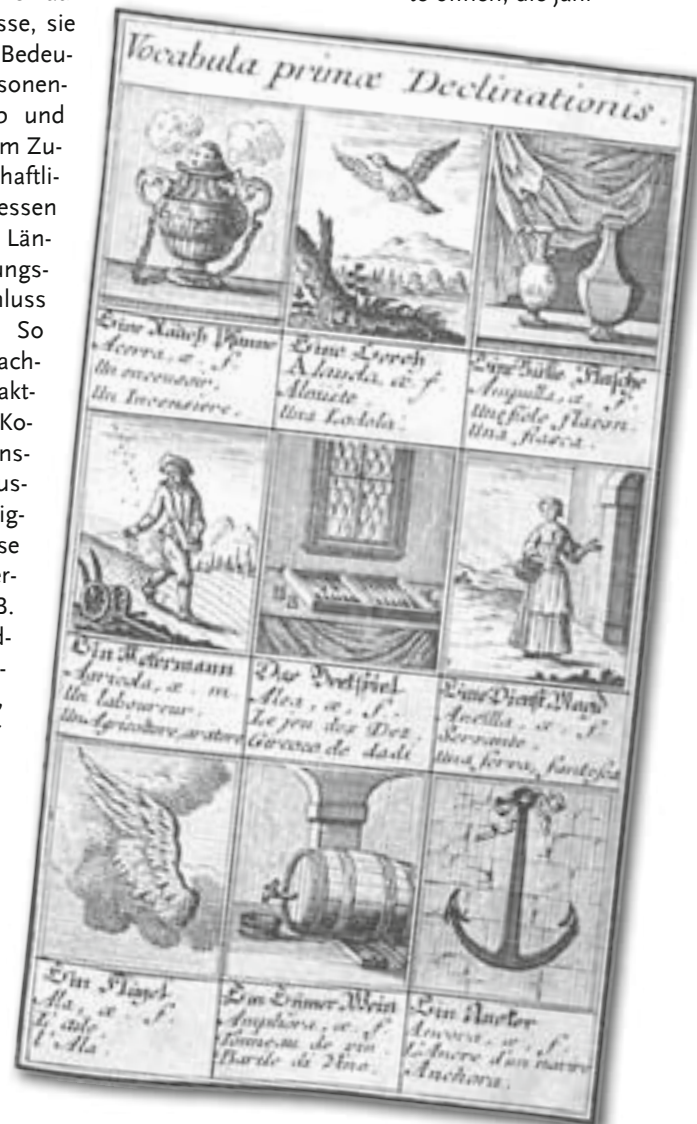 te öffnen, die jahr-
sse, sie
Bedeu-
sonen-
o und
m Zu-
haftli-
essen
Län-
ungs-
hluss
So
ach-
akt-
Ko-
ns-
us-
ig-
se
er-
3.
d-
-
Vocabula primæ Declinationis.
Eine Rauch Pfanne
Acerra, æ. f.
Un encensoir.
Un Incensiere.
Eine Lerch
Alauda, æ f
Alouete
Una Lodola.
Eine Flasche
Ampulla, æ. f.
Une fiole flacon.
Una fiasca.
Ein Ackermann
Agricola, æ. m.
Un laboureur.
Un Agricoltore, aratore
Das Bretspiel
Alea, æ, f.
Le jeu des Dez.
de dadi
Eine Dienst Magd
Ancilla, æ. f.
Servante.
Una serva, fantesca
Ein Flügel
Ala, æ. f.
L'Ala.
Ein Eimer Wein
Amphora, æ, f
Tonneau de vin.
Barile di Vino.
Ein Ancker
Ancora, æ, f.
L'Ancre d'un navire
Anchora.